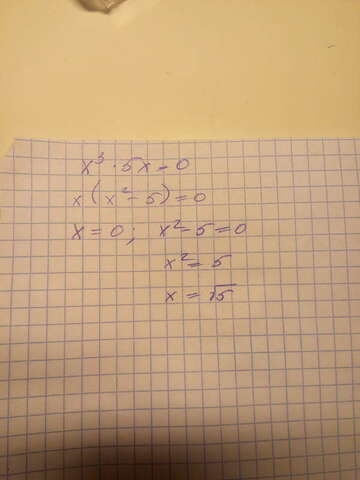 x³ · 5x - 0
x(x² - 5) = 0
x = 0; x² - 5 = 0
x² = 5
x = √5